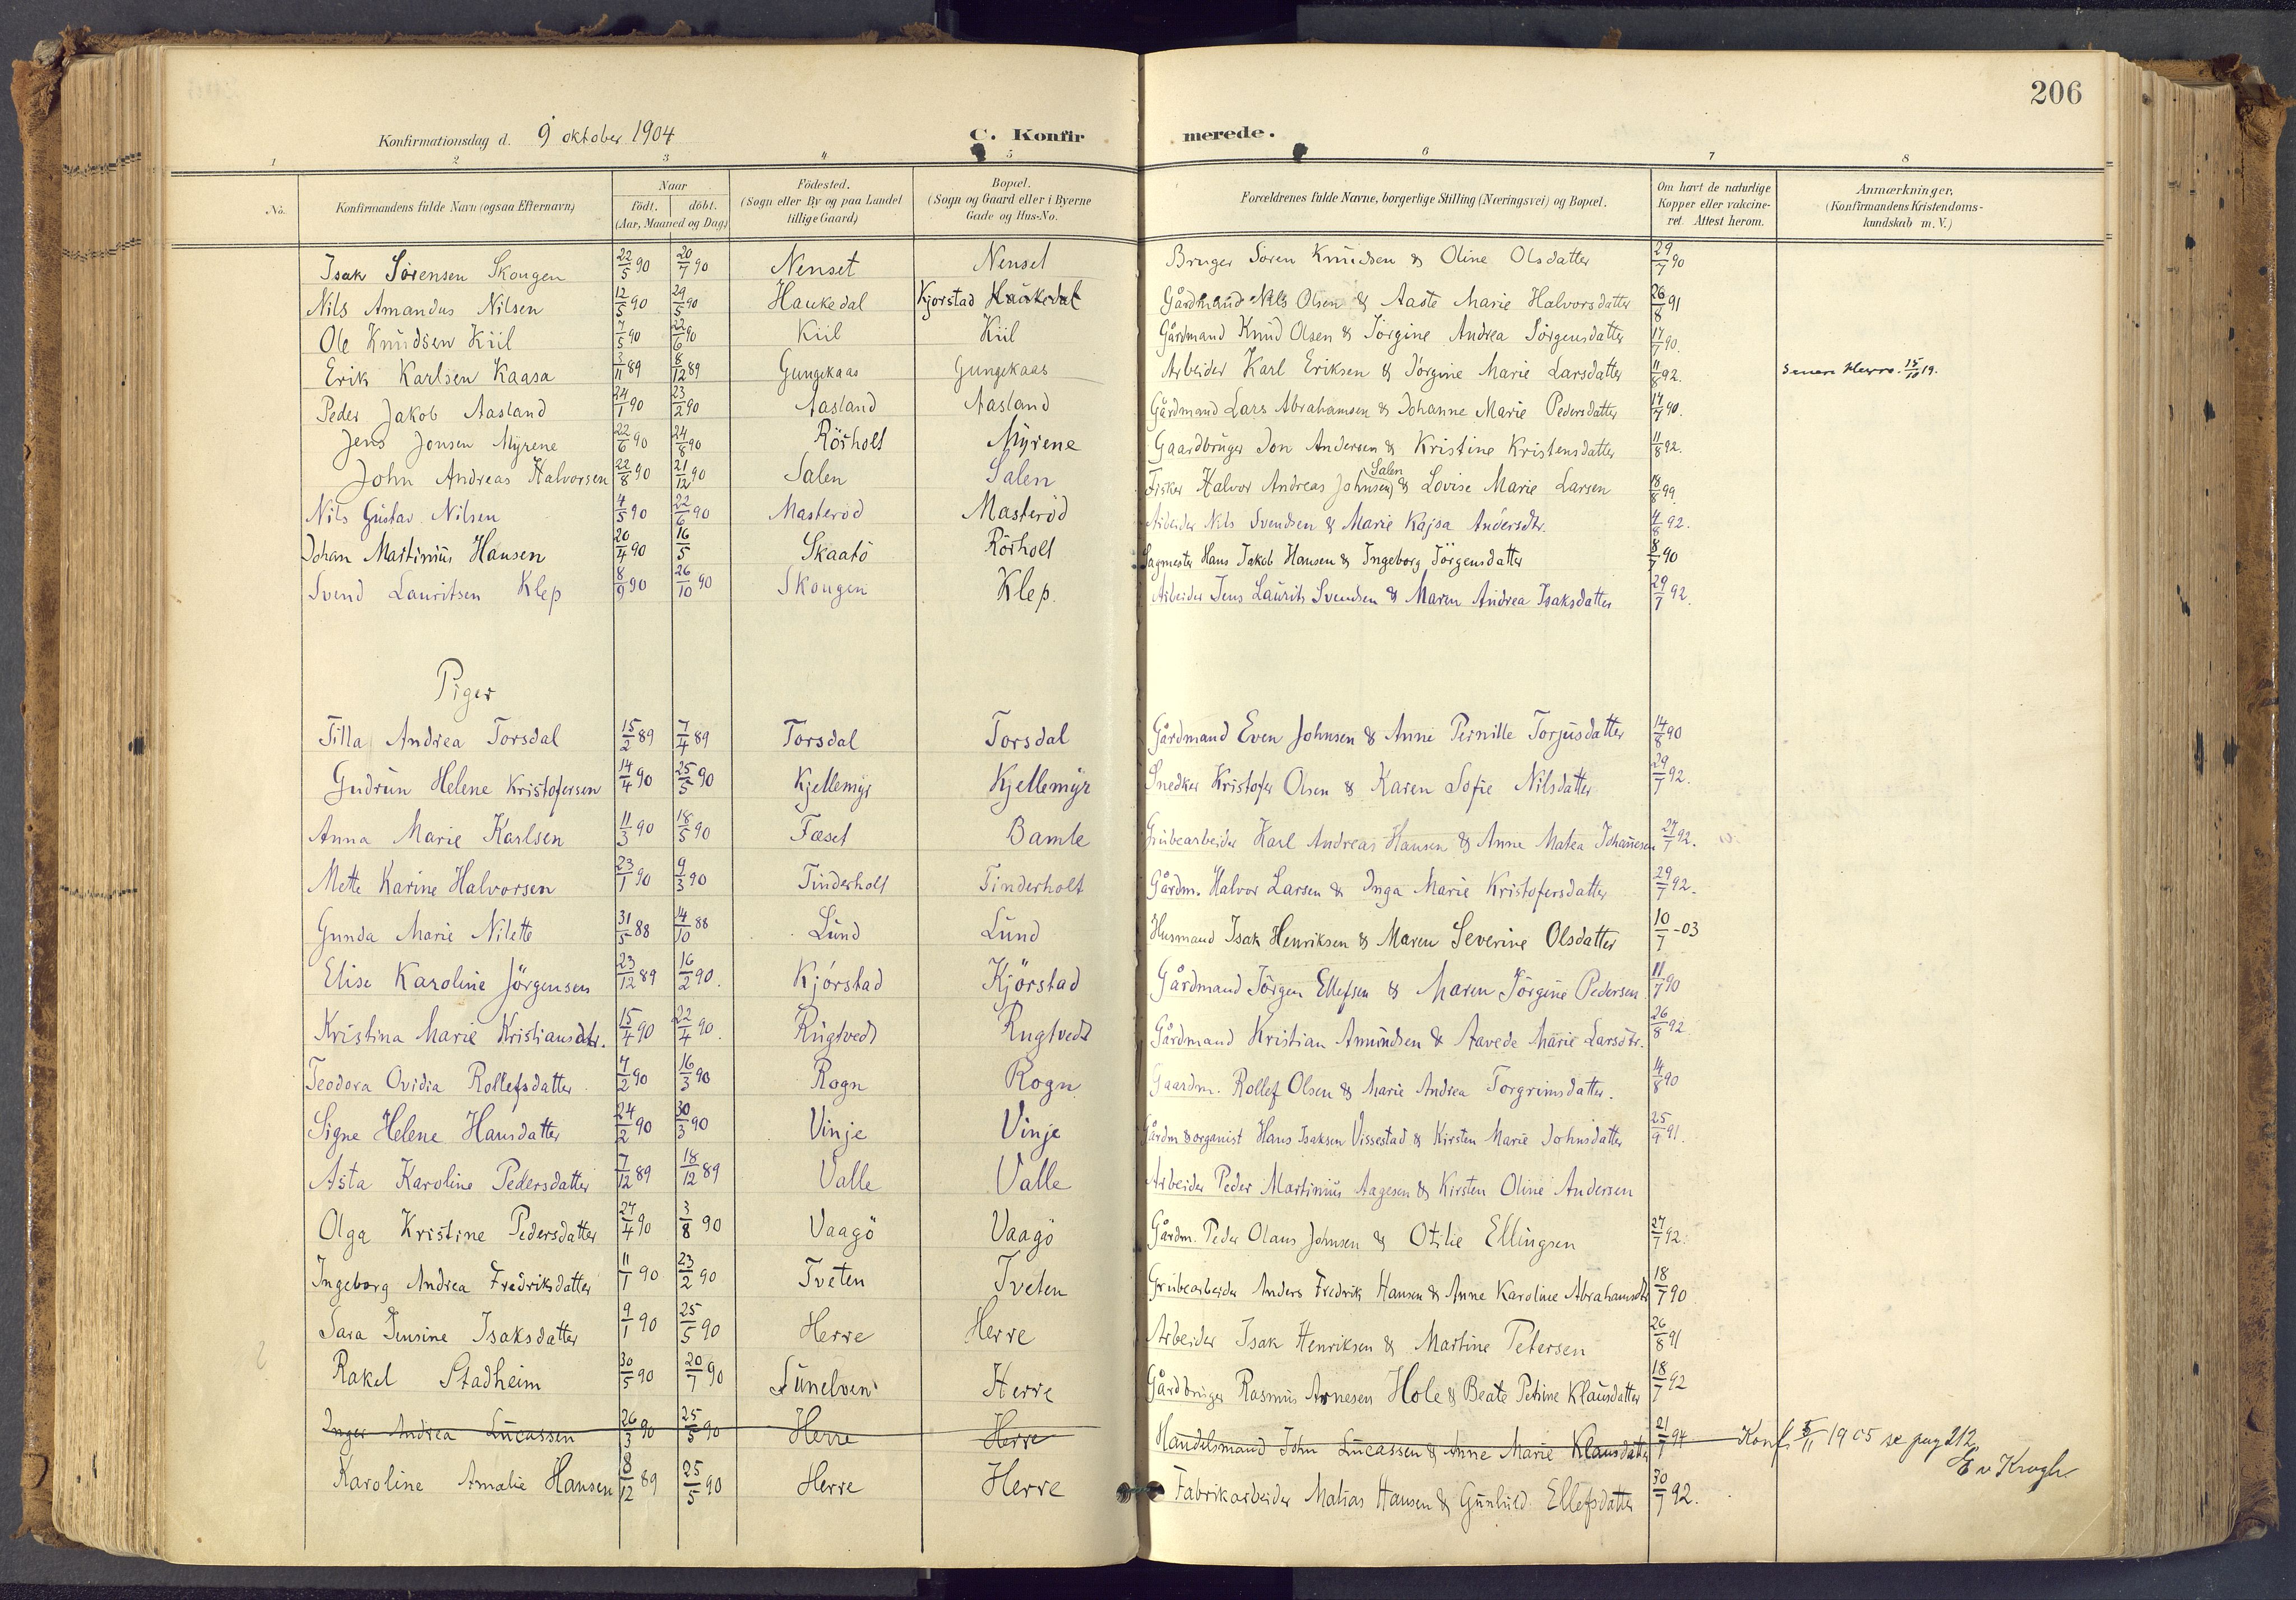 206
Konfirmationsdag d. 9 oktober 1904 C. Konfirmerede.
1 2 3 4 5 6 7 8
No. Konfirmandens fulde Navn (ogsaa Efternavn) Naar født. døbt. (Aar, Maaned og Dag) Fødested. (Sogn eller By og paa Landet tillige Gaard) Bopæl. (Sogn og Gaard eller i Byerne Gade og Hus-No. Forældrenes fulde Navne, borgerlige Stilling (Næringsvei) og Bopæl. Om havt de naturlige Kopper eller vakcineret. Attest herom. Anmærkninger, (Konfirmandens Kristendomskundskab m. V.)
Isak Sörensen Skougen 22/5 90 20/7 90 Nenset Nenset Bruger Sören Knudsen & Oline Olsdatter 29/7 90
Nils Amandus Nilsen 12/5 90 29/5 90 Haukedal Kjorstad Haukedal Gårdmand Nils Olsen & Aaste Marie Halvorsdatter 26/8 91
Ole Knudsen Kiil 7/5 90 22/6 90 Kiil Kiil Gårdmand Knud Olsen & Jörgine Andrea Jörgensdatter 17/7 90.
Erik Karlsen Kaasa 3/11 89 8/12 89 Gungekaas Gungekaas Arbeider Karl Eriksen & Jörgine Marie Larsdatter 11/8 92. Herre. 15/10 19.
Peder Jakob Aasland 24/1 90 23/2 90 Aasland Aasland Gårdmand Lars Abrahamsen & Johanne Marie Pedersdatter 17/7 90.
Jens Jonsen Myrene 22/6 90 24/8 90 Rörholt Myrene Gaardbruger Jon Andersen & Kristine Kristensdatter 11/8 92.
John Andreas Halvorsen 22/8 90 21/12 90 Salen Salen Fisker Halvor Andreas Johnsen Salen & Lovise Marie Larsen 18/8 99
Nils Gustav Nilsen 4/5 90 22/6 90 Masteröd Masteröd Arbeider Nils Svendsen & Marie Kajsa Andersdtr. 4/8 92.
Johan Martinius Hansen 20/4 90 16/5 Skaatö Rörholt Sagmester Hans Jakob Hansen & Ingeborg Jörgensdatter 8/7 90
Svend Lauritsen Klep 8/9 90 26/10 90 Skougen Klep. Arbeider Jens Laurits Svendsen & Maren Andrea Isaksdatter 29/7 92.
Piger
Tilla Andrea Torsdal 15/2 89 7/4 89 Torsdal Torsdal Gårdmand Even Johnsen & Anne Pernille Torjusdatter 14/8 90
Gudrun Helene Kristofersen 14/4 90 25/5 90 Kjellemyr Kjellemyr Snedker Kristofer Olsen & Karen Sofie Nilsdatter 29/7 92.
Anna Marie Karlsen 11/3 90 18/5 90 Fæset Bamle Grubearbeider Karl Andreas Hansen & Anne Matea Johannesen 27/7 92.
Mette Karine Halvorsen 23/1 90 9/3 90 Tinderholt Tinderholt Gårdm. Halvor Larsen & Inga Marie Kristofersdatter 29/7 92.
Gunda Marie Nilette 31/5 88 14/10 88 Lund Lund Husmand Isak Henriksen & Maren Severine Olsdatter 10/7 -03
Elise Karoline Jörgensen 23/12 89 16/2 90. Kjörstad Kjörstad Gårdmand Jörgen Ellefsen & Maren Jörgine Pedersen 11/7 90
Kristina Marie Kristiansdtr. 15/4 90 22/4 90. Rugtvedt Rugtvedt Gårdmand Kristian Amundsen & Aavede Marie Larsdtr. 26/8 92
Teodora Ovidia Rollefsdatter 4/2 90 16/3 90 Rogn Rogn Gaardm. Rollef Olsen & Marie Andrea Torgrimsdatter. 14/8 90
Signe Helene Hansdatter 24/2 90 30/3 90 Vinje Vinje Gårdm & organist Hans Isaksen Vissestad & Kirsten Marie Johnsdatter 25/9 91.
Asta Karoline Pedersdatter 7/12 89 18/12 89 Valle Valle Arbeider Peder Martinius Aagesen & Kirsten Oline Andersen
Olga Kristine Pedersdatter 27/4 90 3/8 90 Vaagö Vaagö Gårdm. Peder Olaus Johnsen & Otilie Ellingsen 27/7 92.
Ingeborg Andrea Fredriksdatter 11/1 90 23/2 90 Tveten Tveten Grubearbeider Anders Fredrik Hansen & Anne Karoline Abrahamsdtr 18/7 90
Sara Jensine Isaksdatter 9/1 90 25/5 90 Herre Herre Arbeider Isak Henriksen & Martine Petersen 26/8 91
Rakel Stadheim 30/5 90 20/7 90 Sunelven Herre Gårdbruger Rasmus Arnesen Hole & Beate Petrine Klausdatter 18/7 92
Inger Andrea Lucassen 26/3 90 25/5 90 Herre Herre Handelsmand John Lucassen & Anne Marie Klausdatter 21/7 94 Konf. 5/11 1905 se pag 212
E v Krogh
Karoline Amalie Hansen 8/12 89 25/5 90 Herre Herre Fabrikarbeider Matias Hansen & Gunhild Ellefsdatter 30/7 92.